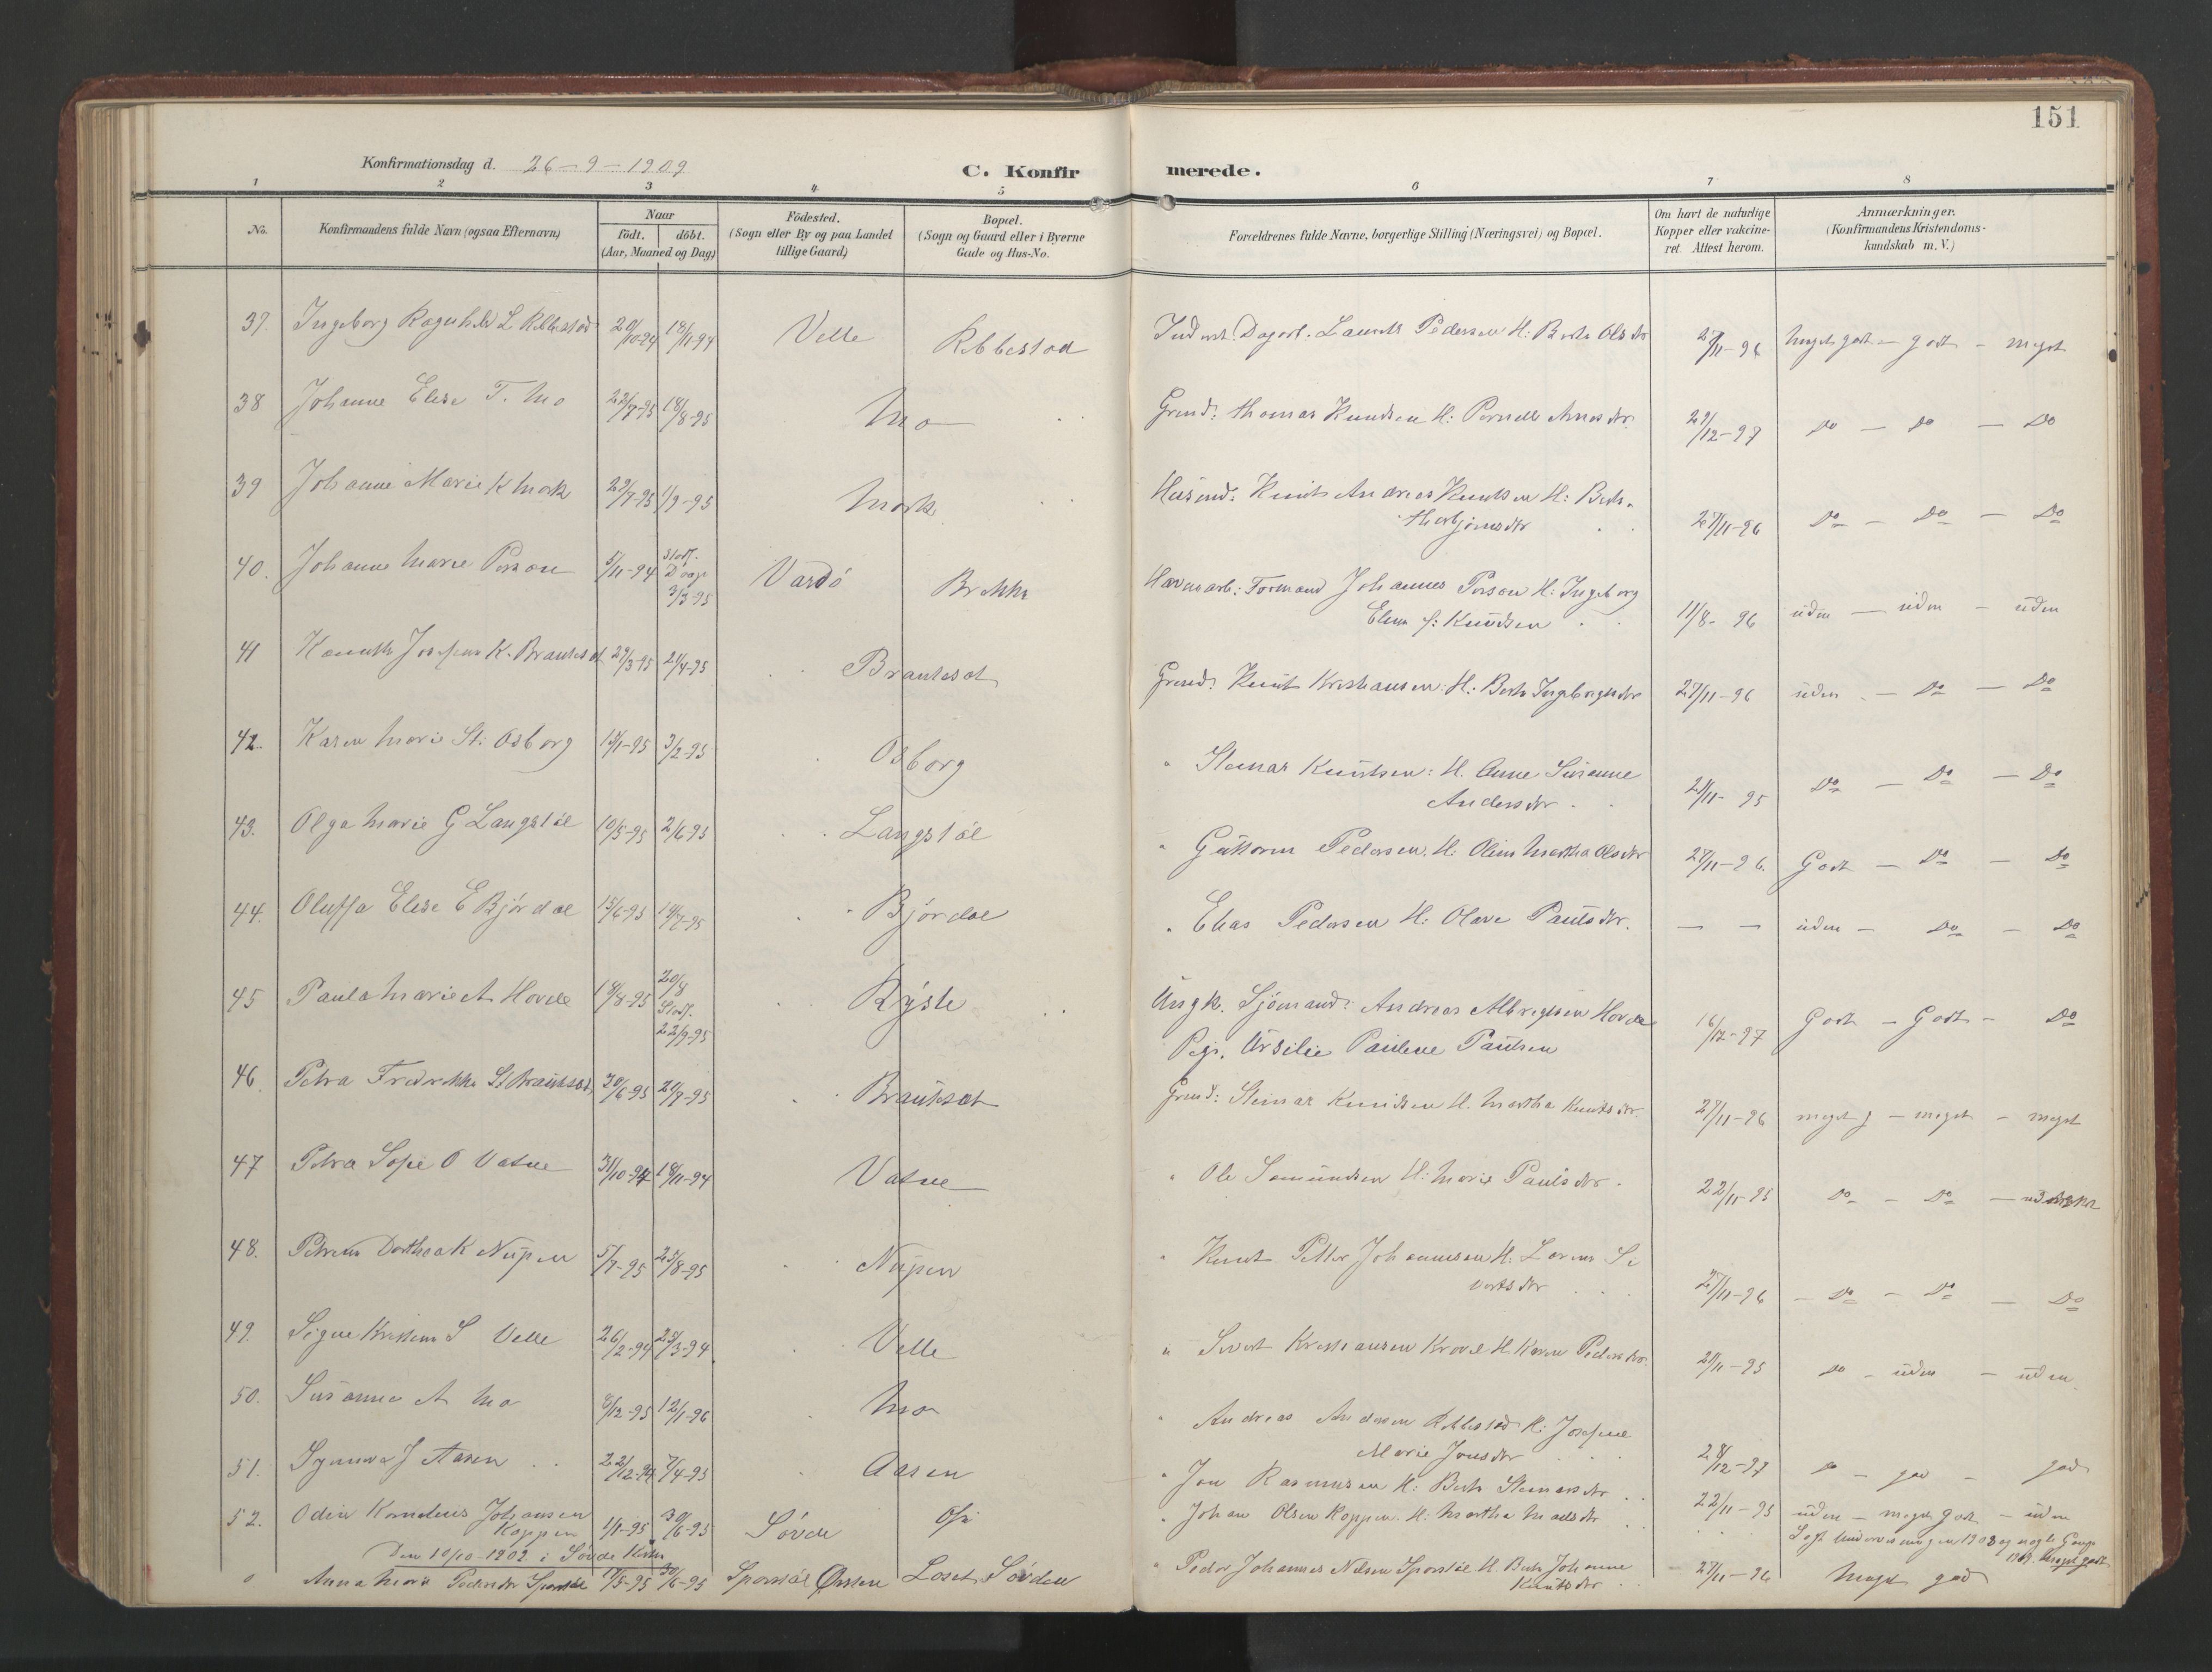 151
Konfirmationsdag d. 26-9-1909
C. Konfirmerede.
1 2 3 4 5 6 7 8
No.
Konfirmandens fulde Navn (ogsaa Efternavn)
Naar
födt. döbt.
(Aar, Maaned og Dag)
Födested.
(Sogn eller By og paa Landet
tillige Gaard)
Bopæl.
(Sogn og Gaard eller i Byerne
Gade og Hus-No.
Forældrenes fulde Navne, borgerlige Stilling (Næringsvei) og Bopæl.
Om havt de naturlige
Kopper eller vakcine-
ret. Attest herom.
Anmærkninger.
(Konfirmandens Kristendoms-
kundskab m. V.)
37. Ingeborg Ragnhild L Ribbestad 20/10-94 18/11-94 Velle Ribbestad Dagarb. Laurits Pedersen H: Berte Olsdtr 27/11-96 Meget godt - godt - meget
38 Johanne Elise T. Mo 22/7-95 18/8-95 Mo Grmd: Thomas Knudsen H: Pernille Arnesdtr. 29/12-97 Do - Do - Do
39 Johanne Marie K Mork 29/7-95 1/9-95 Mork Husmd: Knut Andreas Knutsen H: Berte
Thorbjörnsdtr 27/11-96 Do - Do - Do
40. Johanne Marie Person 5/11-94 Stadf.
Daab
3/3-95 Vardö Brekke Havnearb: Formand Johannes Person H: Ingeborg
Elene f: Knudsen 11/8-96 uden - uden - uden
41 Josefine K. Brauteset 29/3-95 21/4-95 Brauteset Grmd: Knut Kristiansen: H: Berte Ingebrigtsdtr 27/11-96 uden - Do - Do
42. Karen Marie St: Osborg 13/1-95 3/2-95 Osborg " Steinar Knutsen: H. Anne Susanne
Andersdtr 21/11-95 Do - Do - Do
43. Olga Marie G Langstöl 10/5-95 2/6-95 Langstöl " Guttorm Pedersen. H: Oline Martha Olsdtr 27/11-96. Godt - Do - Do
44. Oluffa Elise E Bjørdal 15/6-95 14/7-95 Bjørdal " Elias Pedersen H: Olave Paulsdtr. - - uden - Do - Do
45 Paula Marie A Hovde 18/8-95 20/8
Stadf.
22/9-95 Rysle Ungk. Sjömand: Andreas Albregtsen Hovde
Pige. Ursilie Pauline Paulsen 16/12-97 Godt - Godt - Do
46. Petra Fredrikke St Brautesæt 30/6-95 21/7-95 Brautesæt Grmd: Steinar Knudsen H. Martha Knutsdtr 27/11-96 meget g - meget - meget
47 Petra Sofie O Vatne 31/10-94 18/11-94 Vatne " Ole Samundsen H: Marie Paulsdtr. 22/11-95 Do - Do -
48. Dorthea K Nupen 5/7-95 25/8-95 Nupen " Knut Petter Johannesen H. Lovise Si
vertsdtr 27/11-96 - Do - Do - Do
49. Signe Kristine S Velle 26/2-94 25/3-94 Velle " Sivert Kristiansen H Karen Pedersdtr. 21/11-95 Do - uden - uden
50. Susanne A Mo 8/12-95 12/1-96 Mo " Andreas Andersen Ribbestad H: Josefine
Marie Jonsdtr 28/12-97 Do - god - god
51. Synneva J Aasen 22/12-94 7/4-95 Aasen " Jon Rasmusen H: Berte Steinarsdtr 22/11-95 uden - meget godt - uden
52. Odin Kornelius Johansen
Koppen 1/1-95 30/6-95 Søvde " Johan Olsen Koppen. H: Martha Madsdtr
Den 10/10-1909 i Søvde Kirke
Anna Marie Pedersdtr Sporstöl 17/5-95 30/6-95 Sporstöl Ørsten Loset Søvden " Peder Johannes Nilsen Sporstöl H. Berte Johanne
Knutsdtr 27/11-96 Meget god